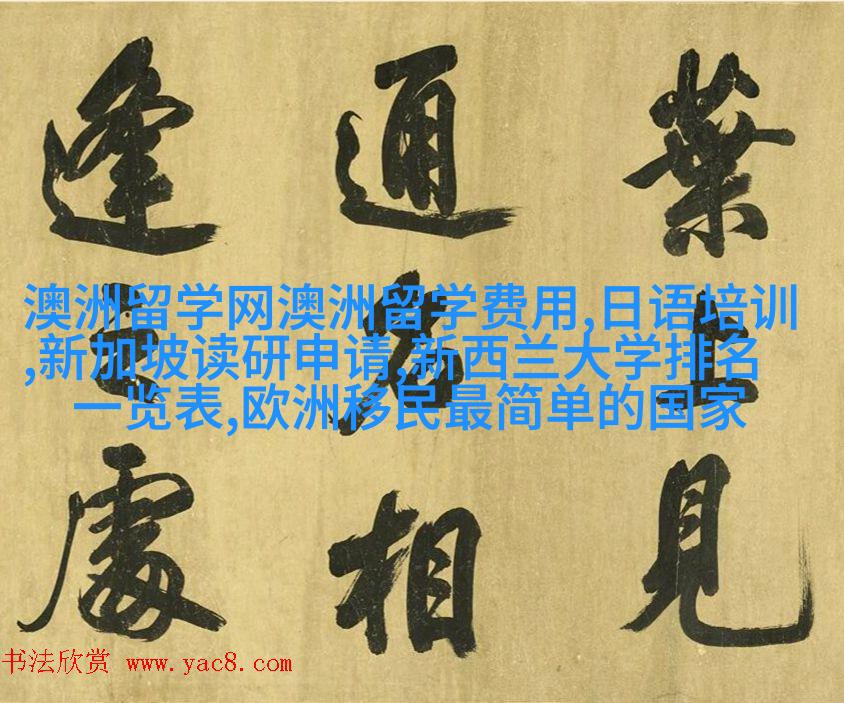 葉上見
通相
逢處
澳洲留学网澳洲留学费用,日语培训
,新加坡读研申请,新西兰大学排名
一览表,欧洲移民最简单的国家
书法欣赏 www.yac8.com